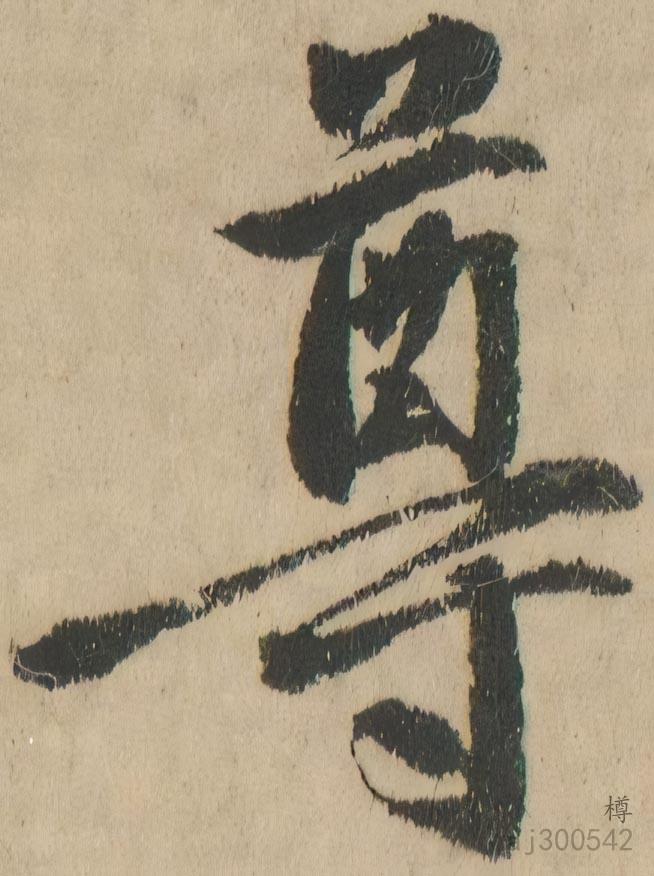 尊
樽
j300542